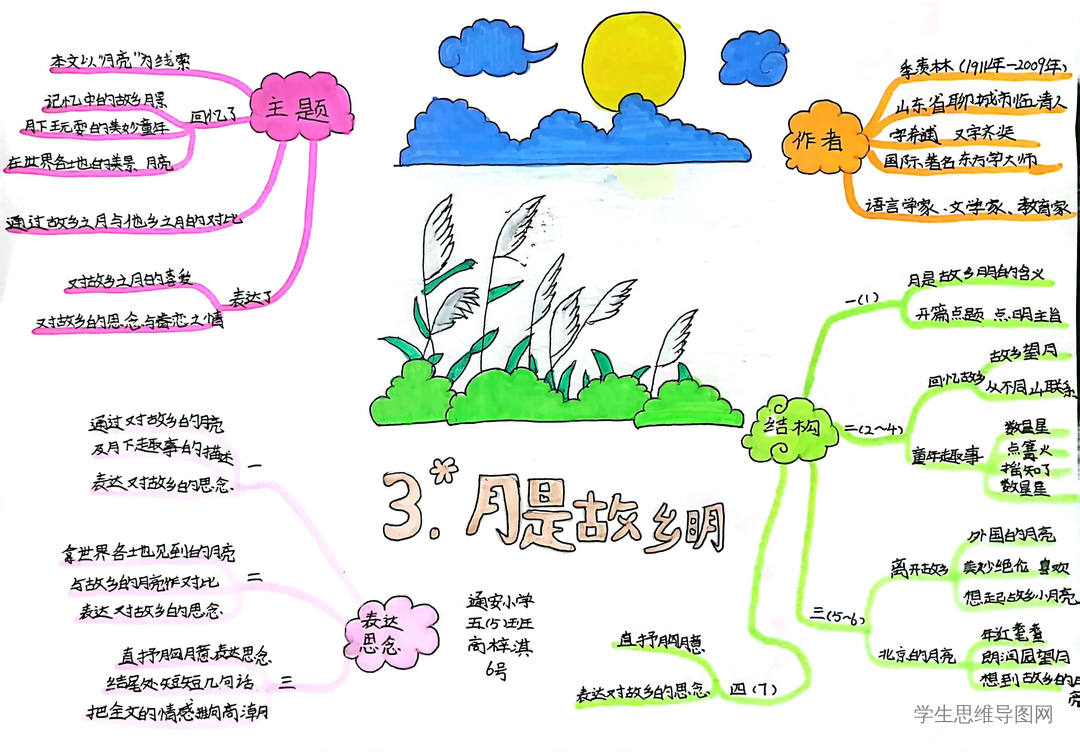 主题
本文以"月亮"为线索
回忆了
记忆中的故乡月景
月下玩耍的美妙童年
在世界各地的美景 月亮
通过故乡之月与他乡之月的对比
表达了
对故乡之月的喜爱
对故乡的思念与眷恋之情
作者
季羡林(1911年—2009年)
山东省聊城市临清人
字希逋 又字齐奘
国际著名东方学大师
语言学家、文学家、教育家
结构
一(1)
月是故乡明的含义
开篇点题 点明主旨
二(2~4)
回忆故乡
故乡望月
从不同山联系
童年趣事
数星星
点篝火
摇知了
数星星
三(5~6)
离开故乡
外国的月亮
美妙绝伦 喜欢
想起故乡小月亮
北京的月亮
年近耄耋
朗润园望月
想到故乡的月亮
四(7)
直抒胸臆
表达对故乡的思念
3.*月是故乡明
通安小学
五(5)班
高梓淇
6号
表达
思念
一
通过对故乡的月亮
及月下趣事的描述
表达对故乡的思念.
二
拿世界各地见到的月亮
与故乡的月亮作对比
表达对故乡的思念.
三
直抒胸臆表达思念
结尾处短短几句话
把全文的情感推向高潮
学生思维导图网